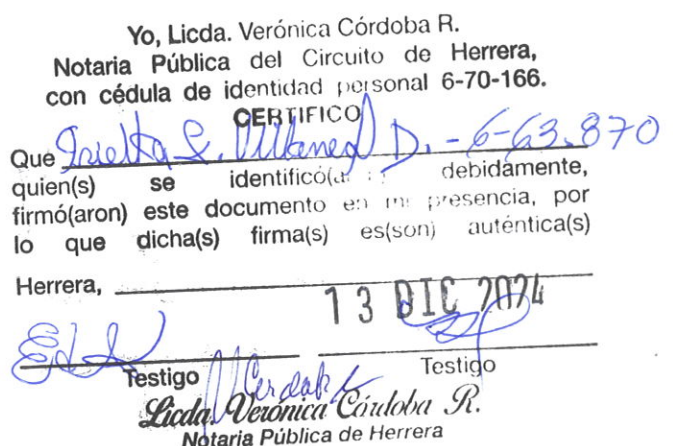 Yo, Licda. Verónica Córdoba R.
Notaria Pública del Circuito de Herrera,
con cédula de identidad personal 6-70-166.
CERTIFICO
Que S. Villarreal D. - 6-63-870
quien(s) se identificó(aron) debidamente,
firmó(aron) este documento en mi presencia, por
lo que dicha(s) firma(s) es(son) auténtica(s)
Herrera,
13 DIC 2024
Testigo Testigo
Licda. Verónica Córdoba R.
Notaria Pública de Herrera